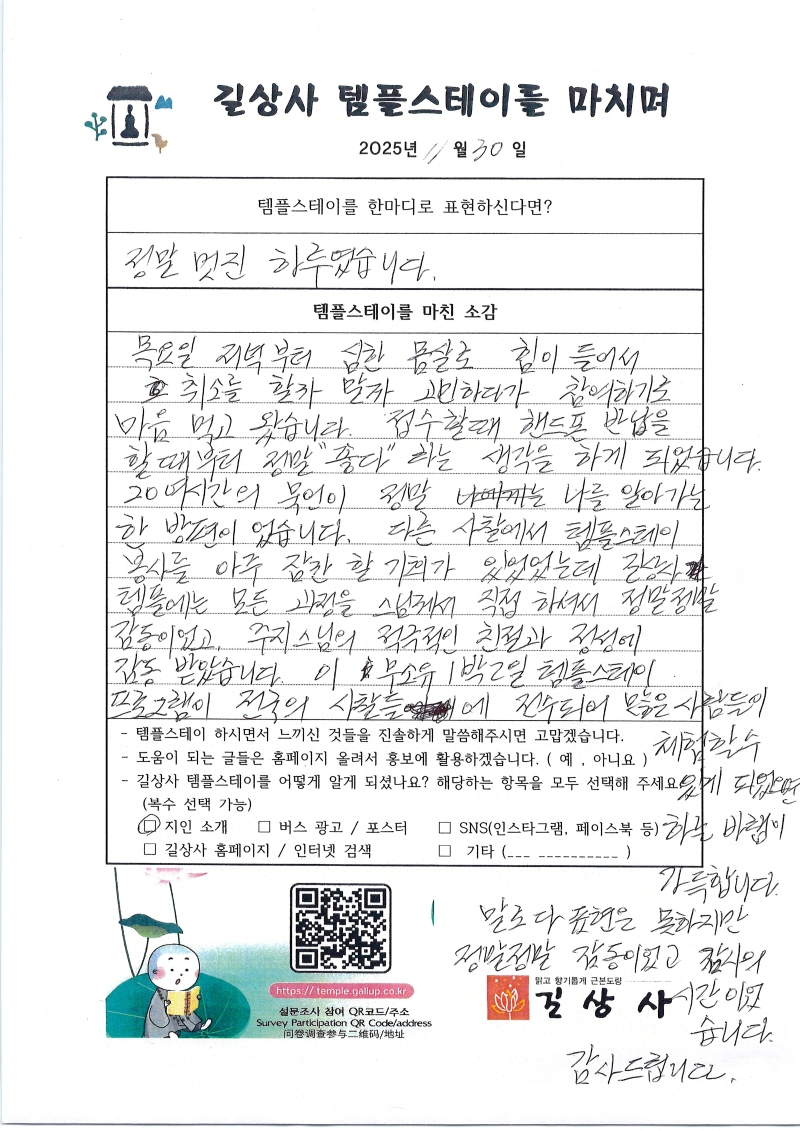 길상사 템플스테이를 마치며
2025년 11월 30일
템플스테이를 한마디로 표현하신다면?
정말 멋진 하루였습니다.
템플스테이를 마친 소감
목요일 저녁부터 심한 몸살로 힘이 들어서
취소를 할까 말까 고민하다가 참여하기로
마음 먹고 왔습니다. 접수할때 핸드폰 반납을
할때부터 정말 "좋다" 하는 생각을 하게 되었습니다.
20여시간의 묵언이 정말 나를 알아가는
한 방편이 었습니다. 다른 사찰에서 템플스테이
봉사를 아주 잠깐 할 기회가 있었었는데 길상사
템플에는 모든 과정을 스님께서 직접 하셔서 정말정말
감동이었고, 주지스님의 적극적인 친절과 정성에
감동 받았습니다. 이 무소유 1박2일 템플스테이
프로그램이 전국의 사찰들에 전수되어 많은 사람들이
체험할수
있게 되었으면
하는 바램이
가득합니다.
말로 다 표현은 못하지만
정말정말 감동이었고 감사의
시간이었
습니다.
감사드립니다.
- 템플스테이 하시면서 느끼신 것들을 진솔하게 말씀해주시면 고맙겠습니다.
- 도움이 되는 글들은 홈페이지 올려서 홍보에 활용하겠습니다. ( 예 , 아니요 )
- 길상사 템플스테이를 어떻게 알게 되셨나요? 해당하는 항목을 모두 선택해 주세요.
(복수 선택 가능)
☐ 지인 소개 ☐ 버스 광고 / 포스터 ☐ SNS(인스타그램, 페이스북 등)
☐ 길상사 홈페이지 / 인터넷 검색 ☐ 기타 (___ __________ )
https://temple.gallup.co.kr
설문조사 참여 QR코드/주소
Survey Participation QR Code/address
问卷调查参与二维码/地址
맑고 향기롭게 근본도량
길상사